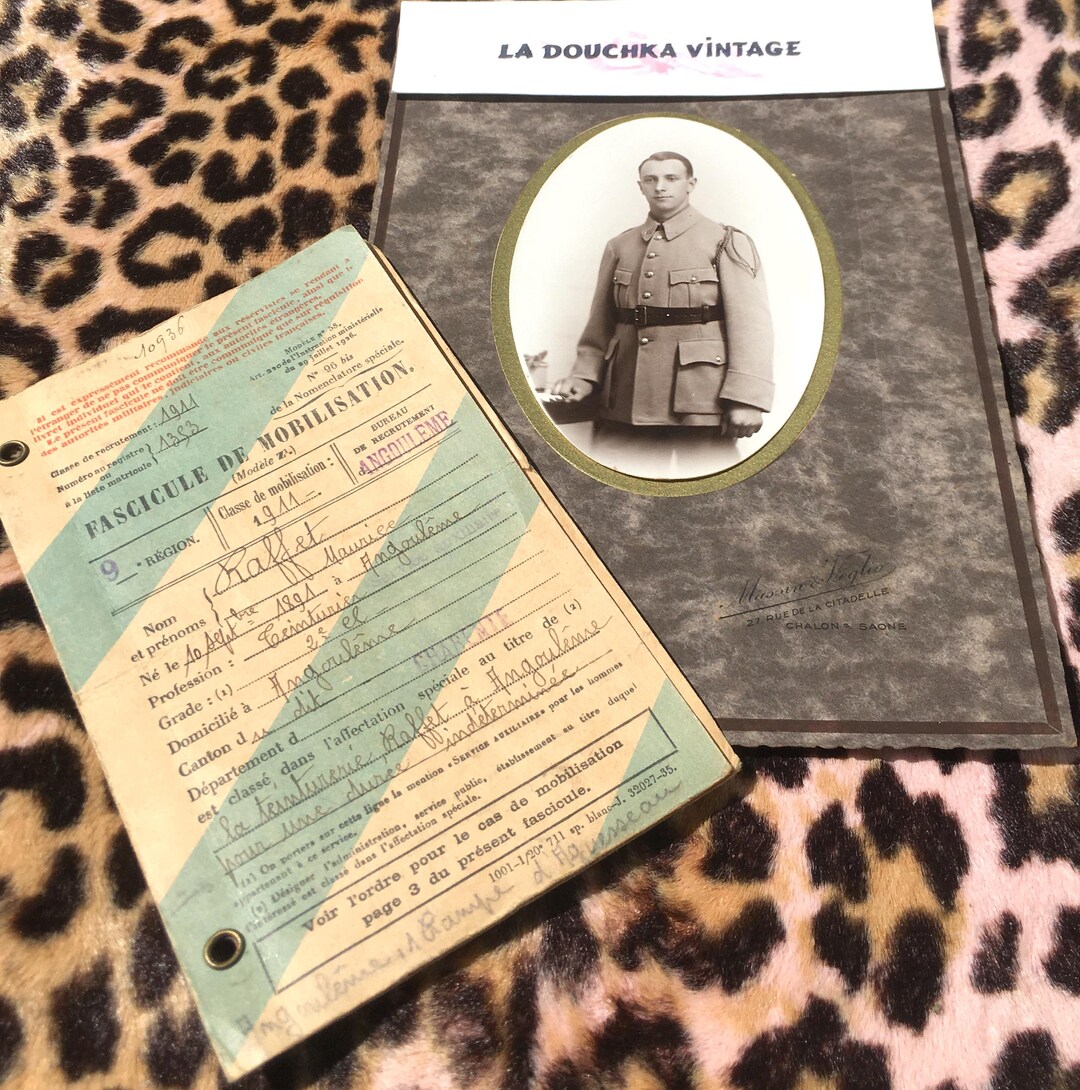 LA DOUCHKA VINTAGE
Massin & Véglio
27 RUE DE LA CITADELLE
CHALON s. SAONE
10936
Il est expressément recommandé aux réservistes se rendant à
l'étranger de ne pas communiquer le présent fascicule, ainsi que le
livret individuel qui le contient, aux autorités étrangères.
Le présent fascicule ne doit être communiqué que sur réquisition
des autorités militaires, judiciaires ou civiles françaises.
MODÈLE N° 58.
Art. de l'Instruction ministérielle
du 20 juillet 1926.
N° 96 bis
de la Nomenclature spéciale.
Classe de recrutement : 1911
Numéro au registre
ou
à la liste matricule } 1353
FASCICULE DE MOBILISATION.
(Modèle Z².)
9e RÉGION.
Classe de mobilisation :
1911
BUREAU
DE RECRUTEMENT
d ANGOULÊME
Nom
et prénoms { Raffet
Maurice
Né le 10 septbre 1891 à Angoulême
Profession : Teinturier
Grade : (1) 2e cl
Domicilié à Angoulême
Canton du dit
Département d CHARENTE
est classé dans l'affectation spéciale au titre de (2)
la teinturerie Raffet à Angoulême
pour une durée indéterminée
(1) On portera sur cette ligne la mention « SERVICE AUXILIAIRE » pour les hommes
appartenant à ce service.
(2) Désigner l'administration, service public, établissement au titre duquel
l'intéressé est classé dans l'affectation spéciale.
Voir l'ordre pour le cas de mobilisation
page 3 du présent fascicule.
1001-1/20e 711 sp. blanc-J. 32027-35.
Angoulême, Rampe d'Aguesseau